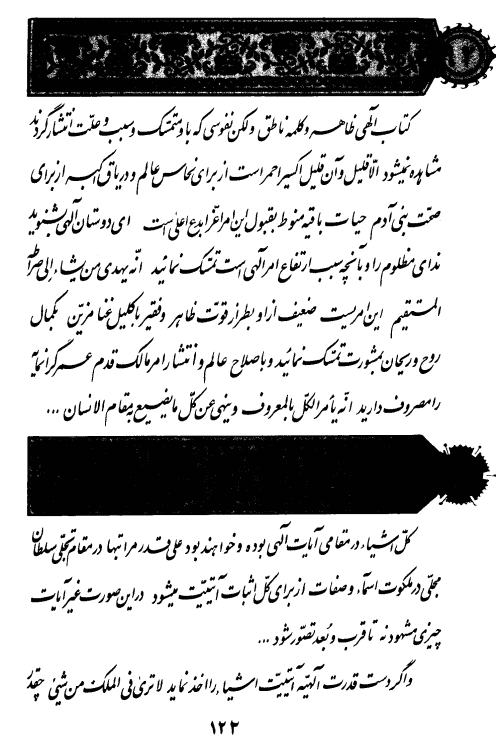 ۲
کتاب الهی ظاهر و کلمه ناطق ولکن نفوسی که باو متمسّک و سبب و علّت انتشار گردند
مشاهده نمیشود الّا قلیل و آن قلیل اکسیر احمر است از برای نحاس عالم و دریاق اکبر از برای
صحّت بنی آدم حیات باقیه منوط بقبول این امر اعزّ ابدع اعلی است ای دوستان الهی بشنوید
ندای مظلوم را و بآنچه سبب ارتفاع امر الهی است تمسّک نمائید انّه یهدی من یشاء إلی صراطه
المستقیم این امریست ضعیف از او بطراز قوّت ظاهر و فقیر باکلیل غنا مزیّن بکمال
روح و ریحان بمشورت تمسّک نمائید و باصلاح عالم و انتشار امر مالک قدم عمر گرانمایه
را مصروف دارید انّه یأمر الکلّ بالمعروف و ینهی عن کلّ ما یضیع به مقام الانسان ...
کلّ اشیاء در مقامی آیات الهی بوده و خواهند بود علی قدر مراتبها در مقام تجلّی سلطان
مجلّی در ملکوت اسمآء و صفات از برای کلّ اثبات آیتیّت میشود در این صورت غیر آیات
چیزی مشهود نه تا قرب و بُعد تصوّر شود ...
و اگر دست قدرت الهیّه آیتیّت اشیاء را اخذ نماید لا تری فی الملک من شیئ چقدر
۱۲۲